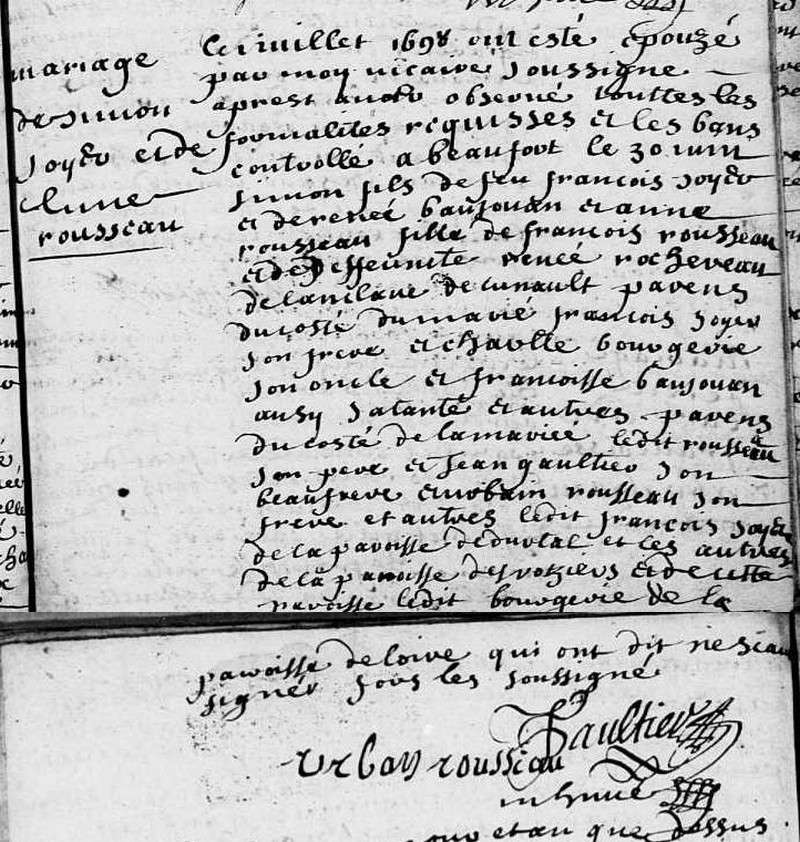 mariage
de Simon
Joyer et de
rousseau
Le juillet 1698 ont esté épouzé
par moy vicaire soussigne
aprest avoir observé touttes les
formalites requisses et les bans
controllé a beaufort le 30 iuin
Simon fils de feu francois Joyer
et de reneé baujouan et anne
rousseau fille de francois rousseau
et de deffeuncte reneé rochereau
de cunault parens
du costé du marié francois Joyer
son frere et charlle bourgerie
son oncle et francoisse baujouan
ausy sa tante et autres parens
du costé de la marieé ledit rousseau
son pere et Jean gaultier son
beaufrere et urbain rousseau son
frere et autres ledit francois Joyer
de la paroisse de durtal et les autres
de la paroisse des rosziers et de cette
paroisse ledit bourgerie de la
paroisse de loire qui ont dit ne scau
signer fors les soussigné
Gaultier
Urban rousseau
que dessus